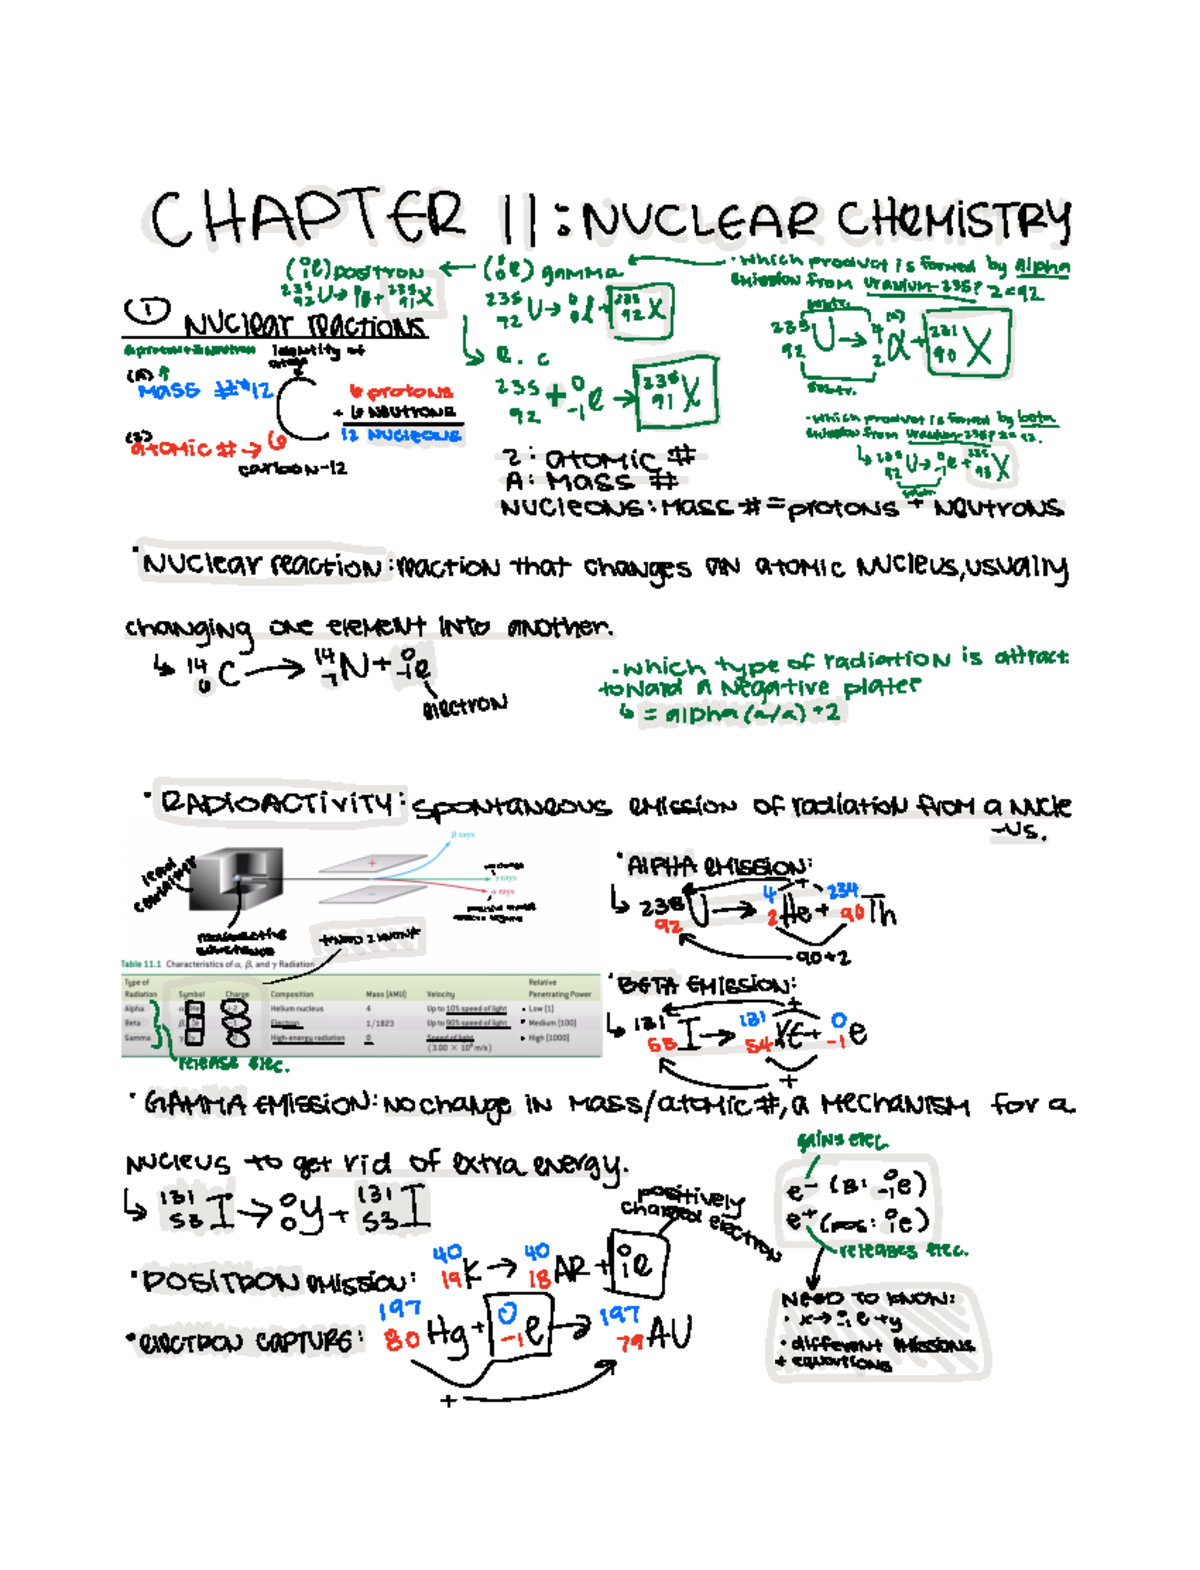 CHAPTER 11: NUCLEAR CHEMISTRY
(⁰₁e) positron ← (⁰₀e) gamma ←
· which product is formed by alpha
emission from uranium-235? z=92
²³⁵₉₂U → ⁰₁e + ²³⁵₉₁X
²³⁵₉₂U → ⁰₀ + ²³⁵₉₂X
²³⁵₉₂U → ⁴₂α + ²³¹₉₀X
① NUCLEAR REACTIONS
identity of
↳ e.c
²³⁵₉₂ + ⁰₋₁e → ²³⁵₉₁X
(A)
MASS # → 12
6 protons
+ 6 NEUTRONS
12 NUCLEONS
atomic # → 6
carbon-12
· which product is formed by beta
emission from uranium-235? z=92.
↳ ²³⁵₉₂U → ⁰₋₁e + ²³⁵₉₃X
Z: atomic #
A: MASS #
NUCLEONS: MASS # = protons + NEUTRONS
· NUCLEAR reaction: reaction that changes an atomic nucleus, usually
changing one element into another.
↳ ¹⁴₆C → ¹⁴₇N + ⁰₋₁e
electron
· which type of radiation is attract
toward a negative plate?
↳ = alpha (a/α) +2
· RADIOACTIVITY: spontaneous emission of radiation from a nucle
-us.
β rays
γ rays
α rays
lead container
radioactive substance
*NEED 2 KNOW*
· ALPHA EMISSION:
↳ ²³⁸₉₂U → ⁴₂He + ²³⁴₉₀Th
90+2
Table 11.1 Characteristics of α, β, and γ Radiation
Type of Radiation Symbol Charge Composition Mass (AMU) Velocity Relative Penetrating Power
Alpha +2 Helium nucleus 4 Up to 10% speed of light Low (1)
Beta Electron 1/1823 Up to 90% speed of light Medium (100)
Gamma 0 High-energy radiation 0 Speed of light (3.00 × 10⁸ m/s) High (1000)
release elec.
· BETA EMISSION:
↳ ¹³¹₅₃I → ¹³¹₅₄Xe + ⁰₋₁e
· GAMMA EMISSION: no change in mass/atomic #, a mechanism for a
nucleus to get rid of extra energy.
↳ ¹³¹₅₃I → ⁰₀γ + ¹³¹₅₃I
gains elec.
e⁻ (B: ⁰₋₁e)
e⁺ (pos: ⁰₁e)
releases elec.
positively
charged electron
· POSITRON emission: ⁴⁰₁₉K → ⁴⁰₁₈AR + ⁰₁e
· ELECTRON CAPTURE: ¹⁹⁷₈₀Hg + ⁰₋₁e → ¹⁹⁷₇₉AU
NEED TO KNOW:
· x → ⁰₋₁e + y
· different emissions
+ equations